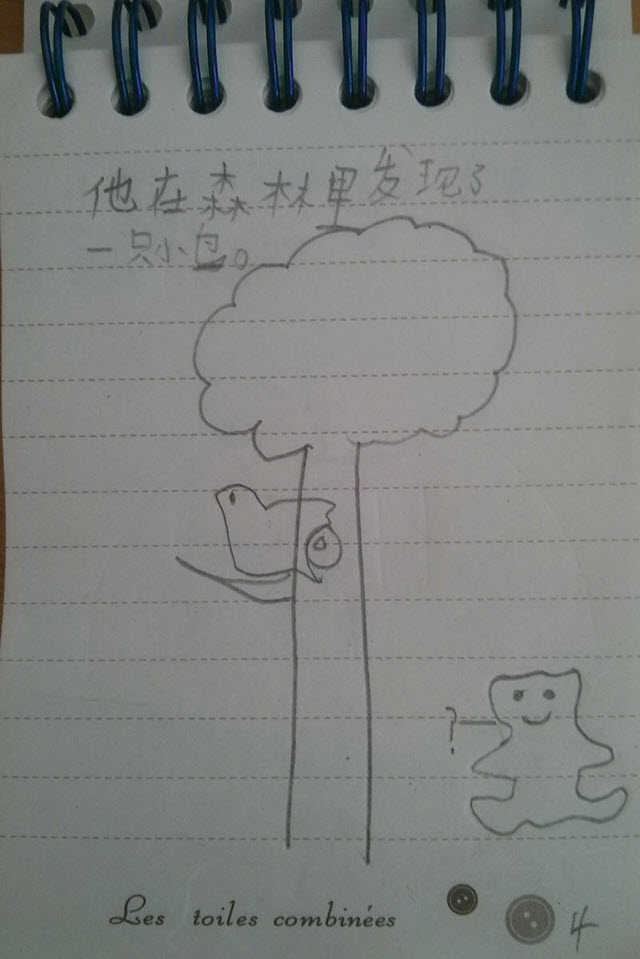 他在森林里发现了
一只小包。
?
Les toiles combinées
4